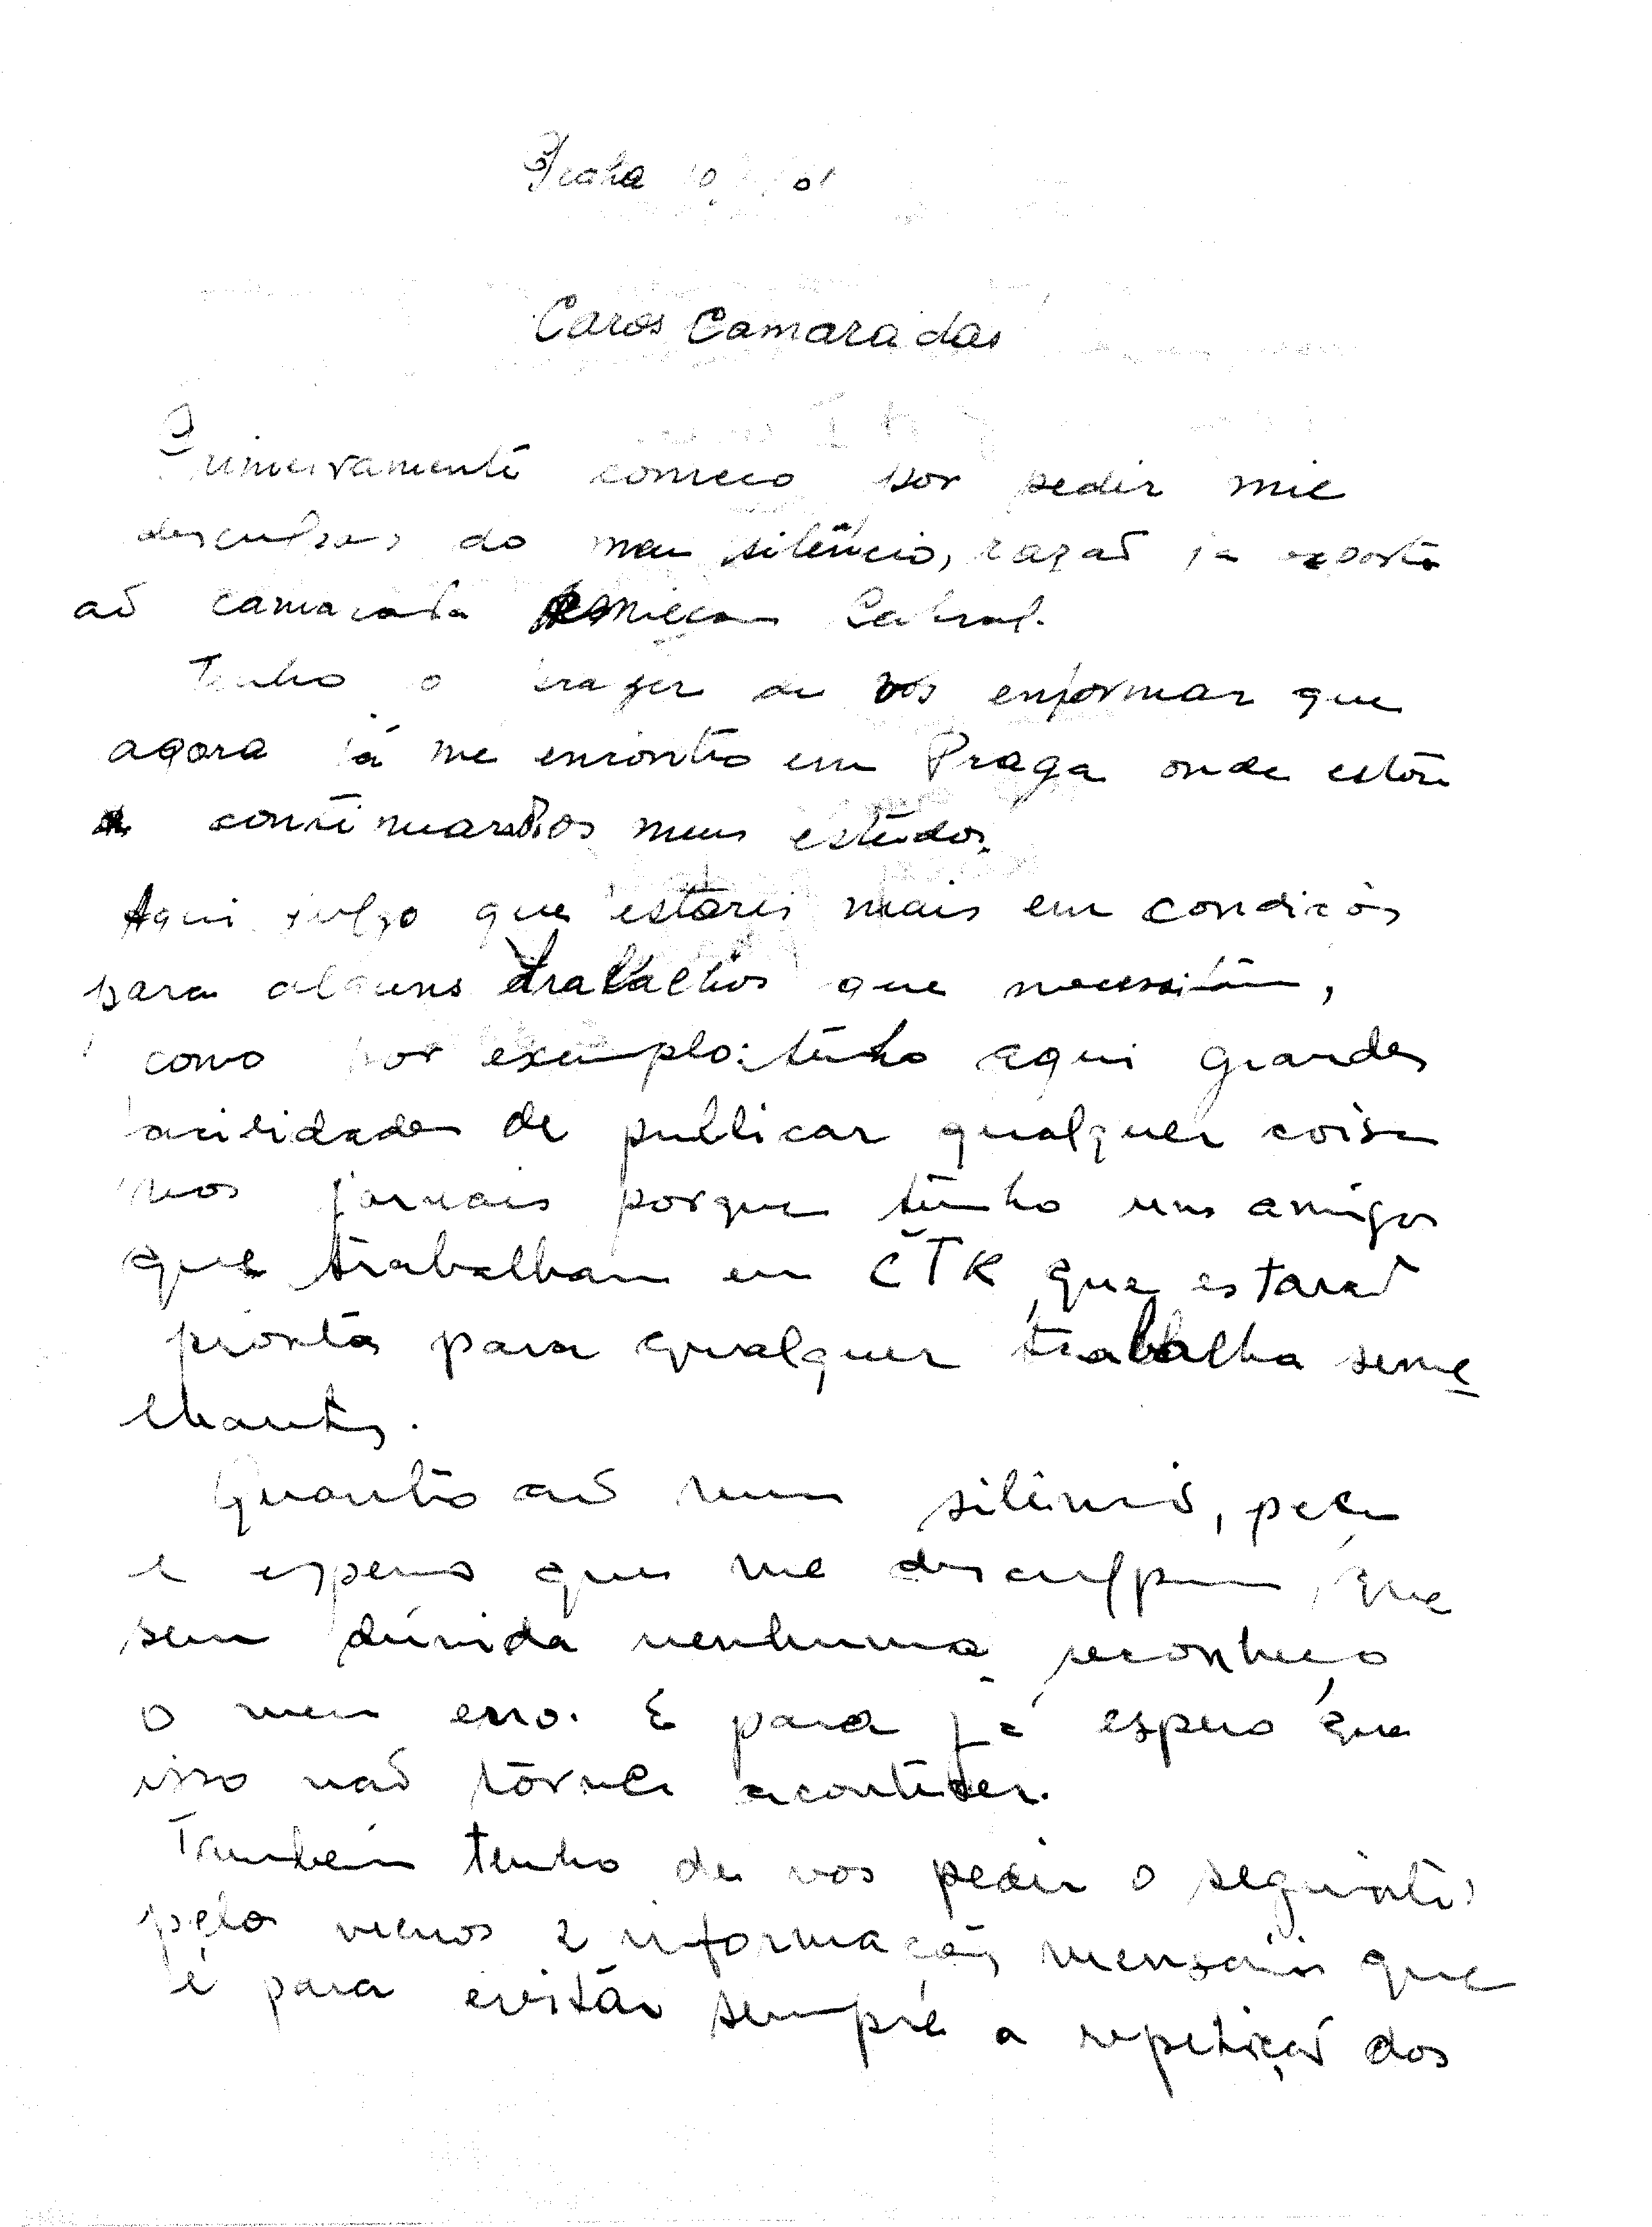 Praha 10
Caros Camaradas
Primeiramente começo por pedir mil
desculpas do meu silêncio, razaõ ja exposta
aõ camarada Cabral.
Tenho o prazer de vos enformar que
agora já me encontro em Praga onde estou
continuando os meus estudos.
Aqui julgo que estarei mais em condicões
para alguns trabalhos que necessitam,
como por exemplo: tenho aqui grandes
facilidades de publicar qualquer coisa
nos jornais porque tenho uns amigos
que trabalham em ČTK, que estaraõ
prontos para qualquer trabalho seme
lhantes.
Quanto aõ meu silêncio, peço
e espero que me desculpem, que
sem dúvida nenhuma reconheço
o meu erro. E para já espero que
isso naõ tornei acontecer.
Também tenho de vos pedir o seguinte:
pelo menos 2 informações mensais que
é para evitar sempre a repetiçaõ dos